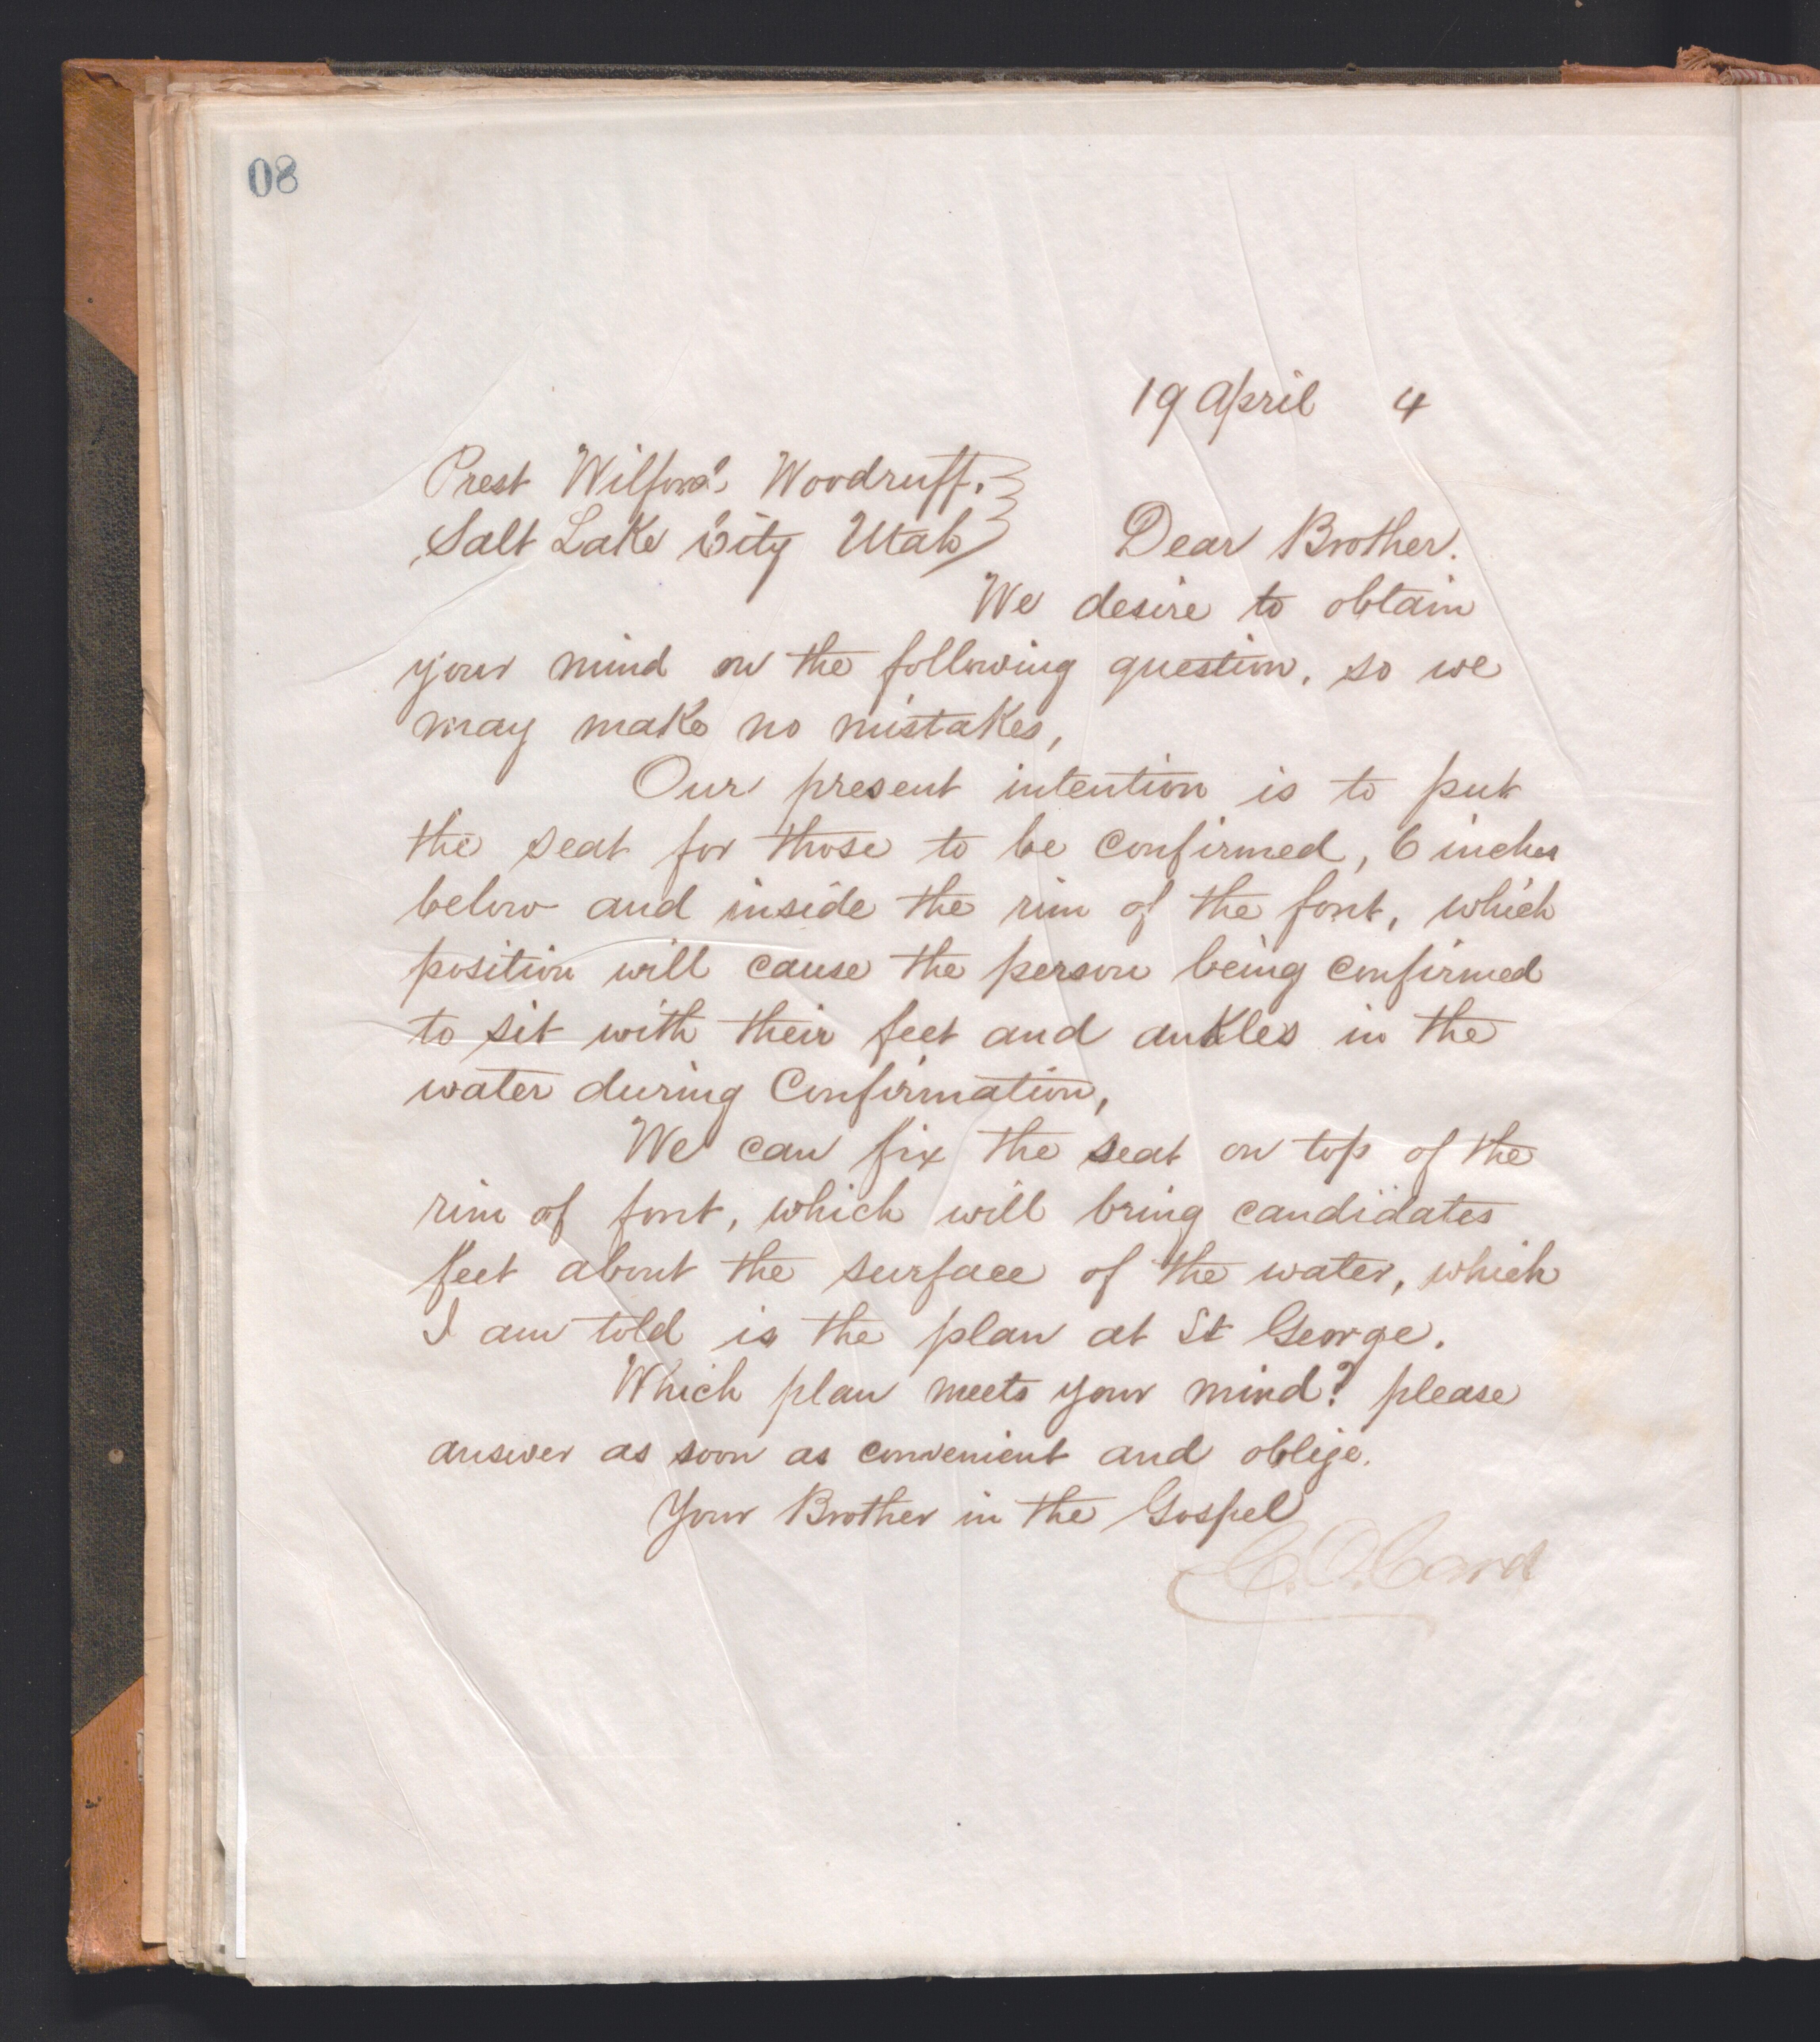 08
19 April 4
Prest Wilford Woodruff.
Salt Lake City Utah
Dear Brother.
We desire to obtain
your mind on the following question, so we
may make no mistakes,
Our present intention is to put
the seat for those to be confirmed, 6 inches
below and inside the rim of the font, which
position will cause the person being confirmed
to sit with their feet and ankles in the
water during Confirmation,
We can fix the seat on top of the
rim of font, which will bring candidates
feet about the surface of the water, which
I am told is the plan at St George.
Which plan meets your mind? please
answer as soon as convenient and oblige.
Your Brother in the Gospel
C. O. Card